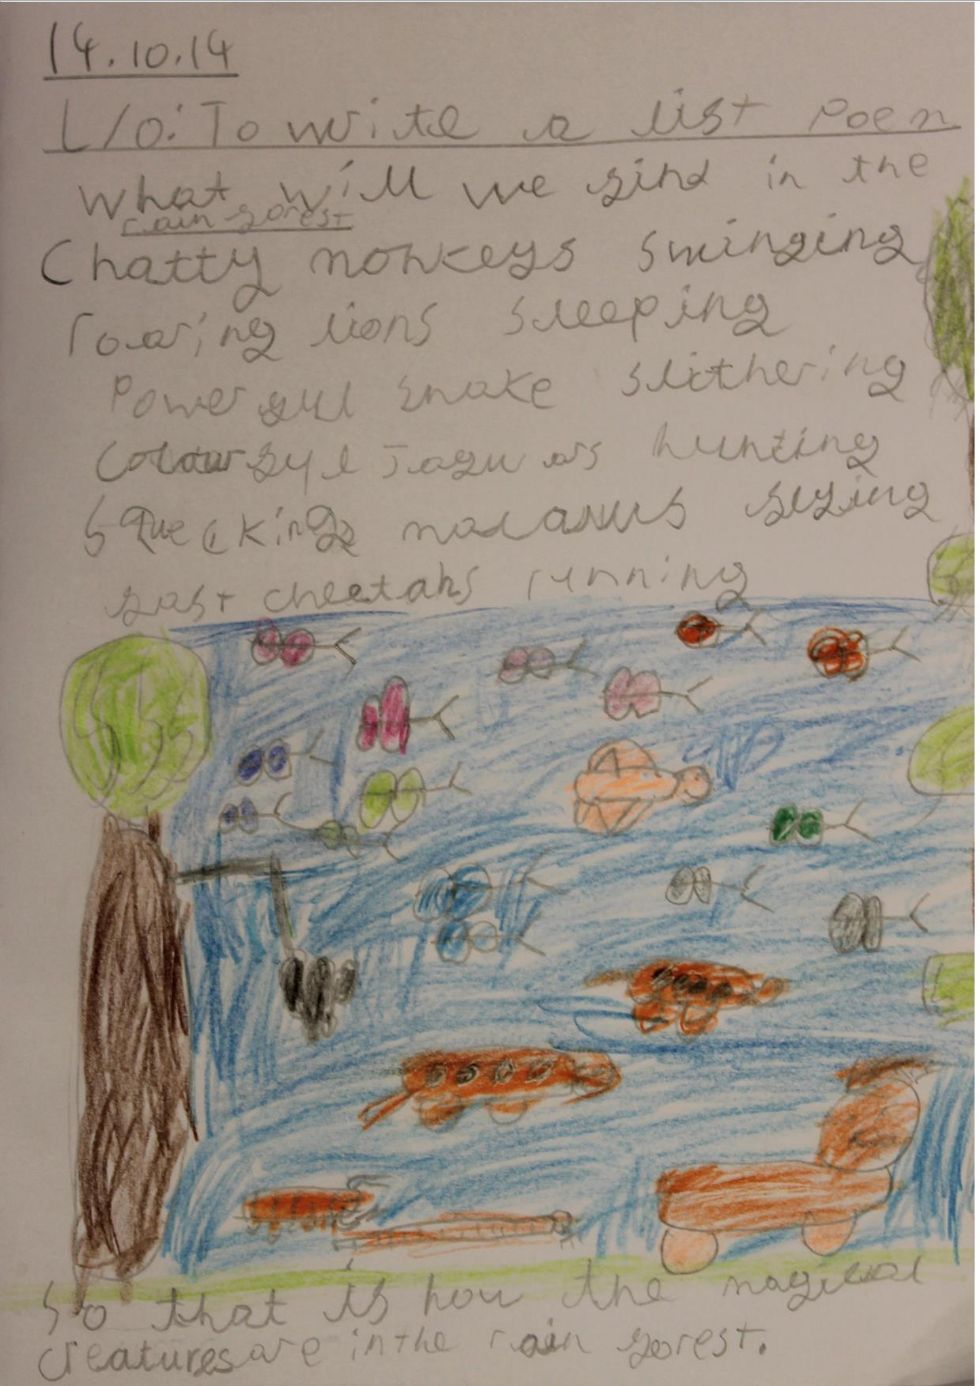 14.10.14
L/o: To write a list poem
What will we find in the
rain forest
Chatty monkeys swinging
roaring lions sleeping
Powerful snake slithering
Colourful Jaguars hunting
Squecking macawus flying
fast cheetahs running
So that is how the magical
creatures are in the rain forest.